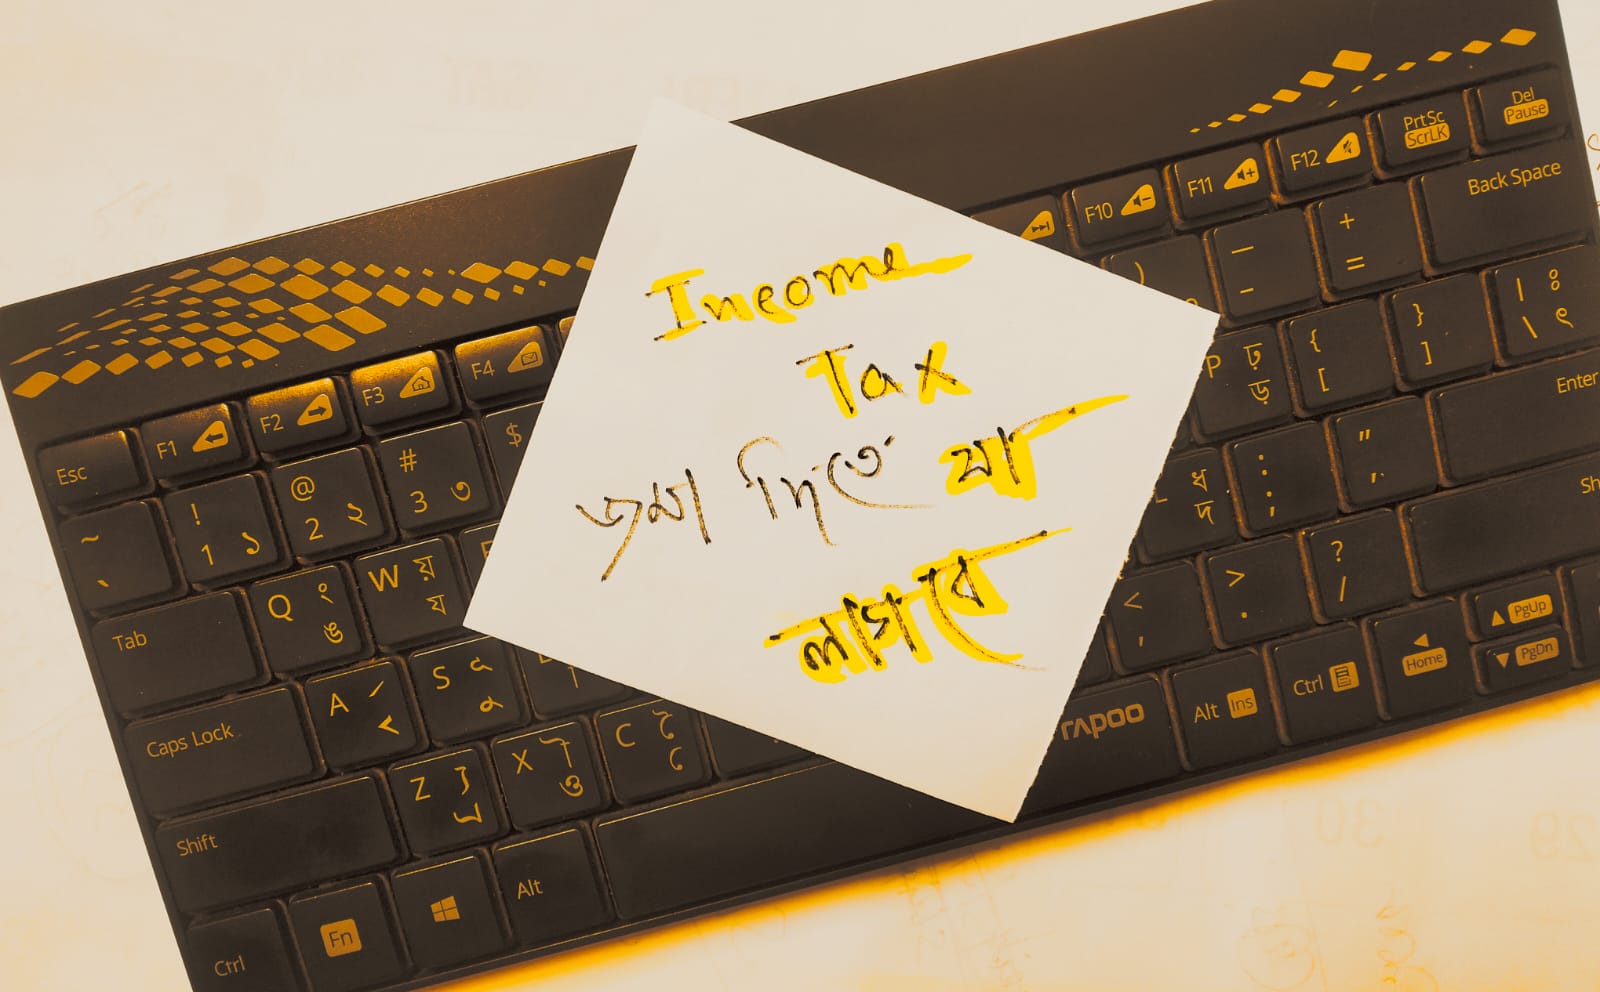 Income
Tax
জমা দিতে যা
লাগবে
Del
Pause
PrtSc
ScrLK
F12
F11
F10
Back Space
+
=
–
-
)
F4
F3
F2
F1
Esc
$
#
3 ৩
@
2 ২
!
1 ১
~
`
| ঃ
\ ৎ
}
]
{
[
P ঢ়
ড়
Enter
Tab
Q ং
ঙ
W য়
য
"
'
:
;
ধ
দ
Caps Lock
A
S
Sh
?
/
>
.
<
,
Shift
Z
X
ও
C
PgUp
PgDn
Home
Ctrl
Alt Ins
rapoo
Alt
Fn
Ctrl
30
29